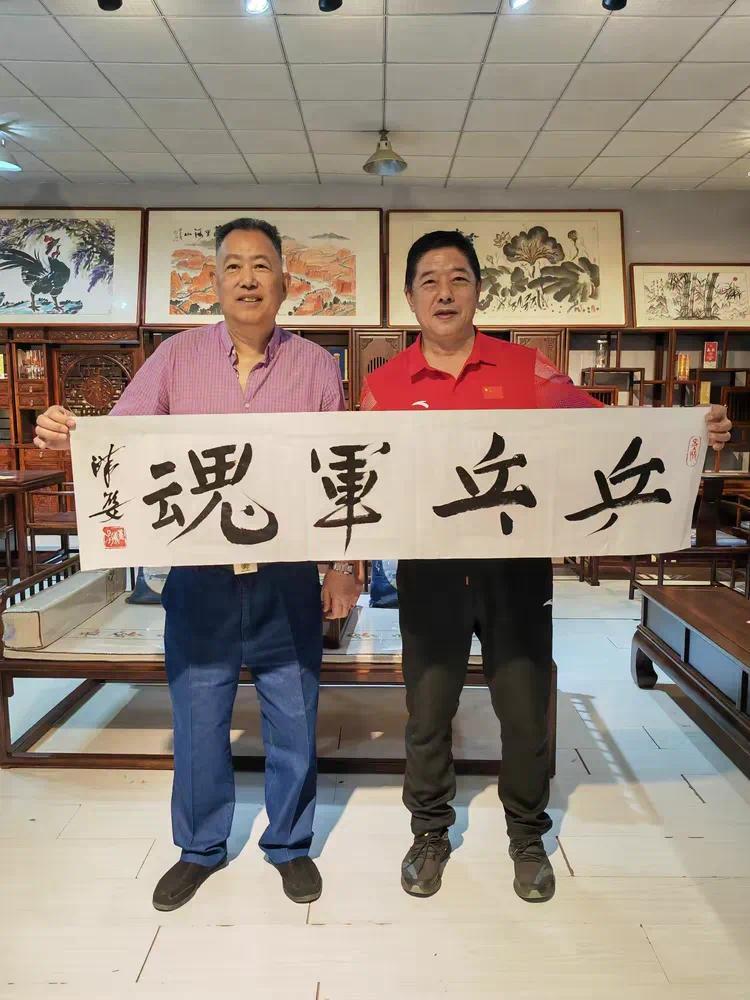 乒乓軍魂